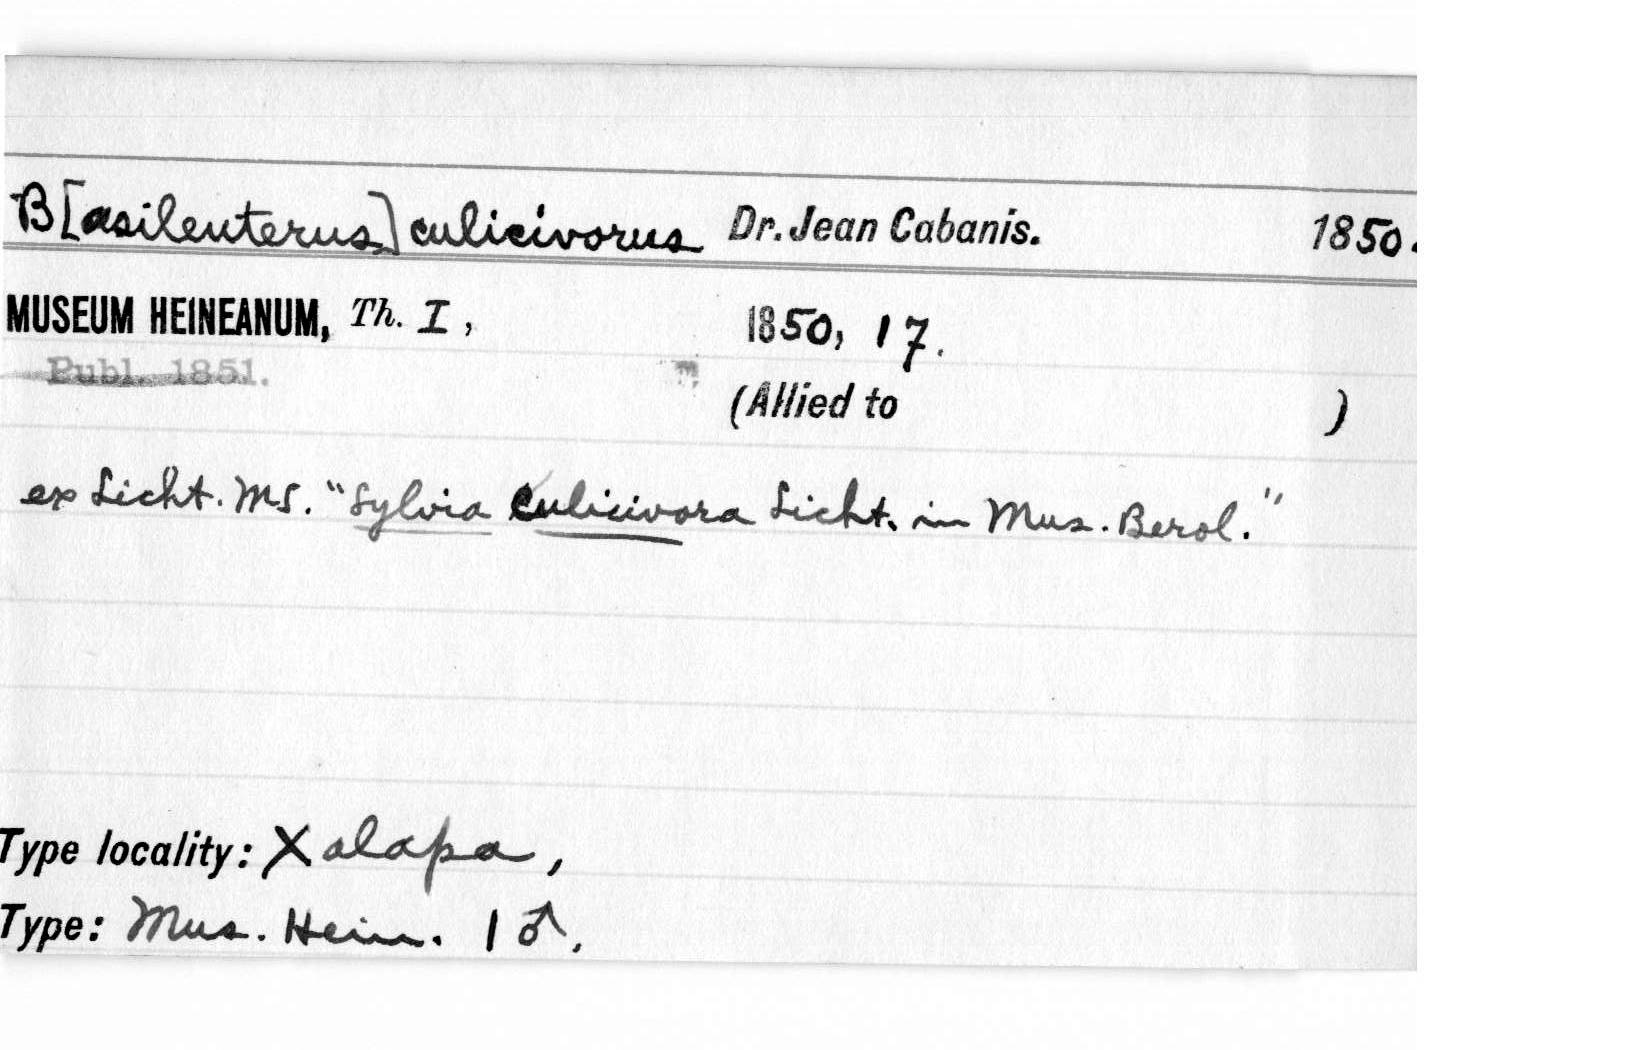 B[asileuterus] culicivorus Dr. Jean Cabanis. 1850.
MUSEUM HEINEANUM, Th. I, 1850, 17.
Publ. 1851.
(Allied to )
ex Licht. MS. "Sylvia culicivora Licht. in Mus. Berol."
Type locality: Xalapa,
Type: Mus. Hein. 1 ♂.